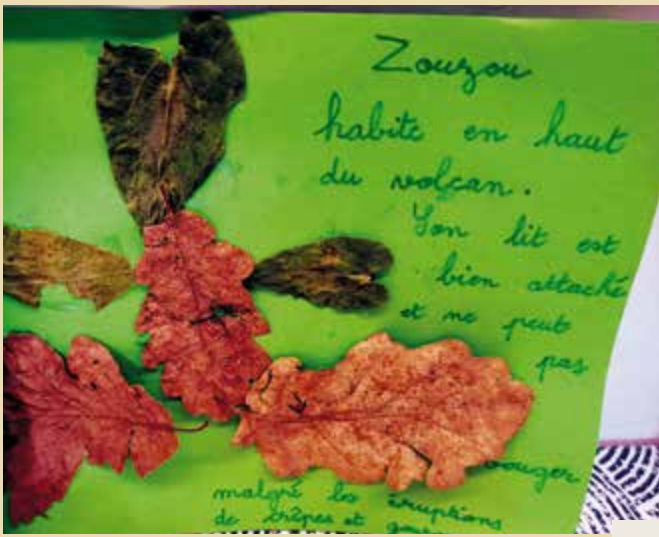 Zouzou
habite en haut
du volcan.
Son lit est
bien attaché
et ne peut
pas
bouger
malgré les éruptions
de crêpes et